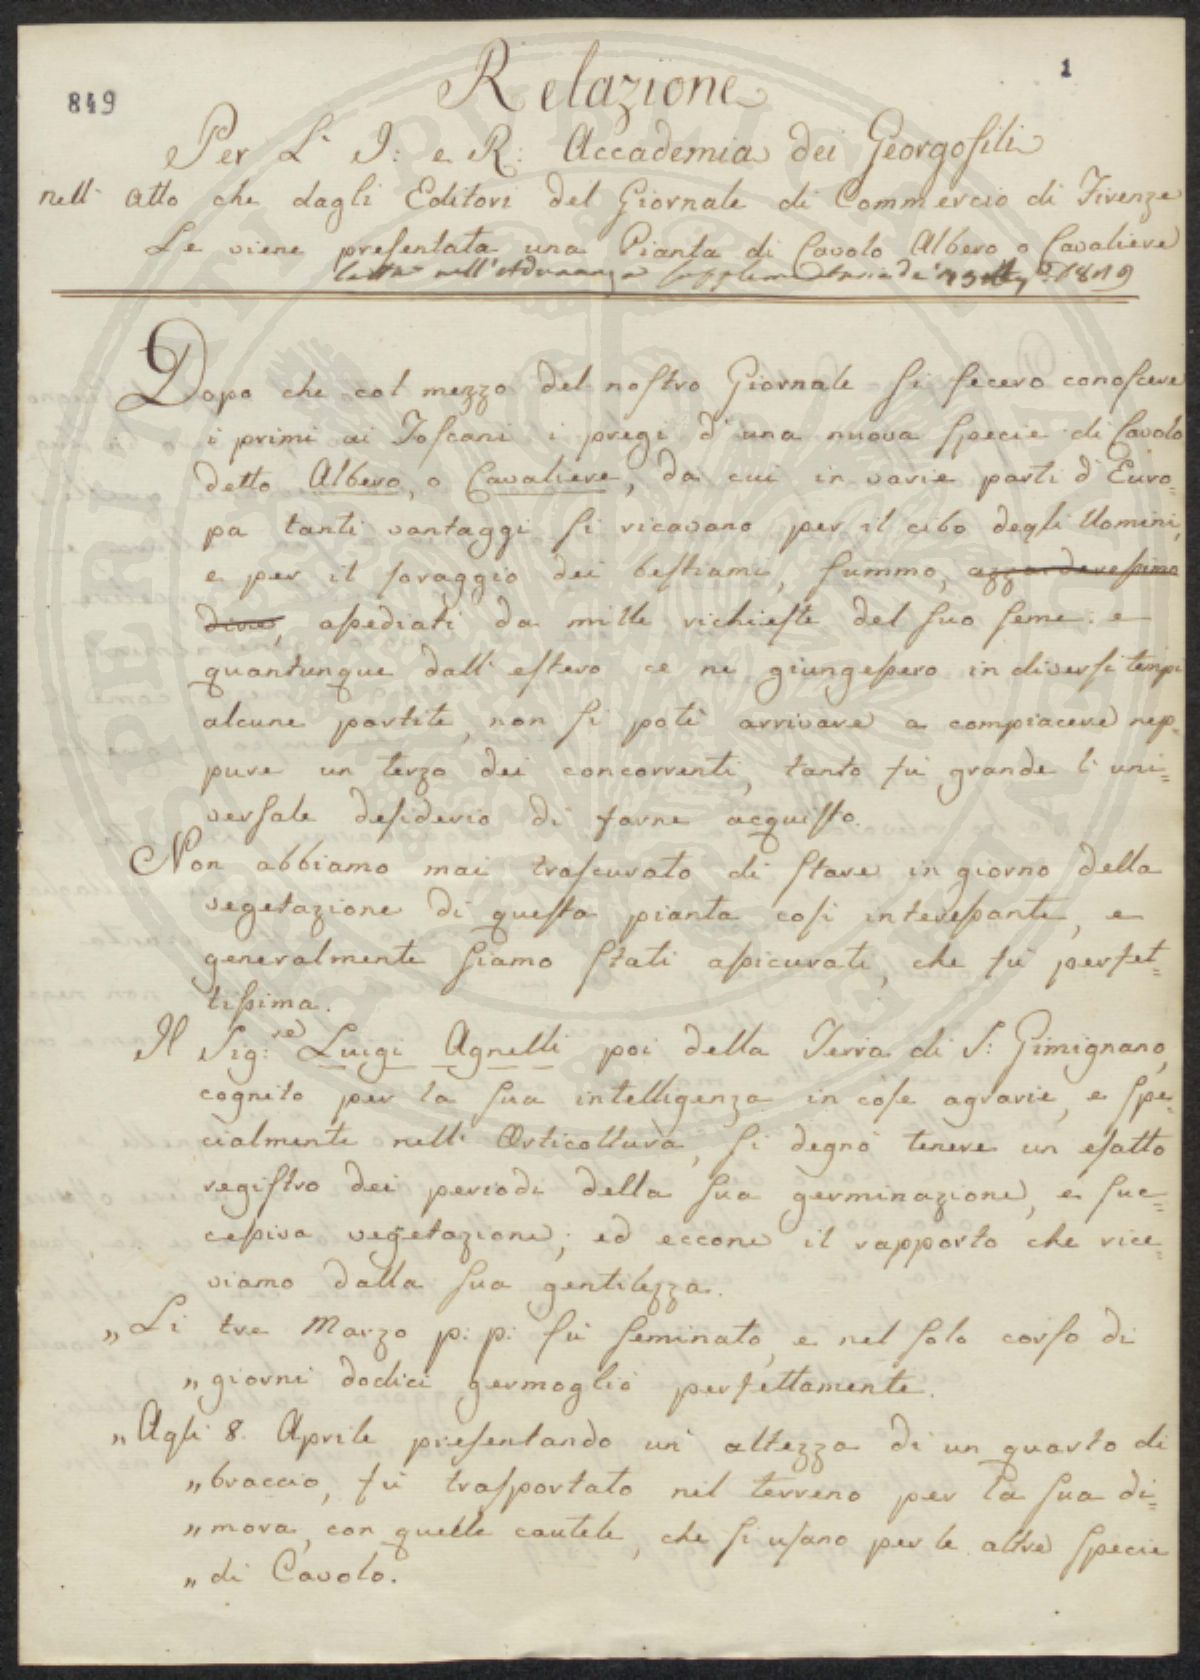 849
1
Relazione
Per L' I: e R: Accademia dei Georgofili
nell' atto che dagli Editori del Giornale di Commercio di Firenze
Le viene presentata una Pianta di Cavolo Albero o Cavaliere
letta nell'Adunanza 1819
Dopo che col mezzo del nostro Giornale si fecero conoscere
i primi ai Toscani i pregi d' una nuova specie di Cavolo
detto Albero, o Cavaliere, da cui in varie parti d' Euro=
pa tanti vantaggi si ricavano per il cibo degli Uomini,
e per il foraggio dei bestiami, fummo, azzarderessimo
dire, assediati da mille richieste del suo seme: e
quantunque dall' estero ce ne giungessero in diversi tempi
alcune partite, non si potè arrivare a compiacere nep=
pure un terzo dei concorrenti, tanto fù grande l' uni=
versale desiderio di farne acquisto.
Non abbiamo mai trascurato di stare in giorno della
vegetazione di questa pianta così interessante, e
generalmente siamo stati assicurati, che fù perfet=
tissima.
Il Sig:re Luigi Agnelli poi della Terra di S: Gimignano,
cognito per la sua intelligenza in cose agrarie, e spe=
cialmente nell' Orticoltura, si degnò tenere un esatto
registro dei periodi della sua germinazione, e suc=
cessiva vegetazione; ed eccone il rapporto che rice=
viamo dalla sua gentilezza.
„ Li tre Marzo p: p: fù seminato, e nel solo corso di
„ giorni dodici germogliò perfettamente.
„ Agli 8. Aprile presentando un' altezza di un quarto di
„ braccio, fù trasportato nel terreno per la sua di=
„ mora, con quelle cautele, che si usano per le altre specie
„ di Cavolo.